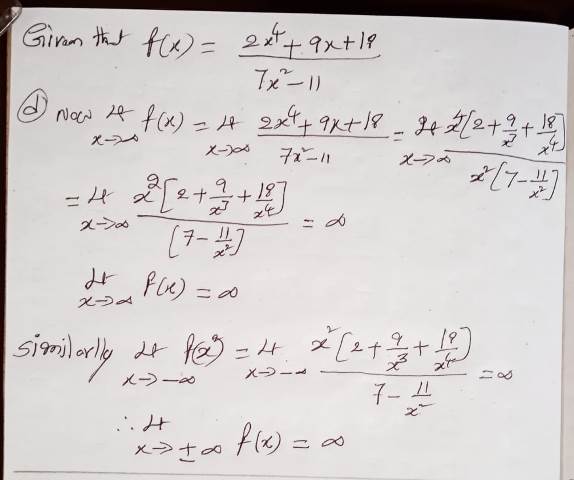 Given that f(x) = (2x⁴+9x+18)/(7x²-11)
(d) Now Lt x→∞ f(x) = Lt x→∞ (2x⁴+9x+18)/(7x²-11) = Lt x→∞ x⁴[2+9/x³+18/x⁴]/x²[7-11/x²]
= Lt x→∞ x²[2+9/x³+18/x⁴]/[7-11/x²] = ∞
Lt x→∞ f(x) = ∞
Similarlly Lt x→-∞ f(x) = Lt x→-∞ x²[2+9/x³+18/x⁴]/(7-11/x²) = ∞
∴ Lt x→±∞ f(x) = ∞